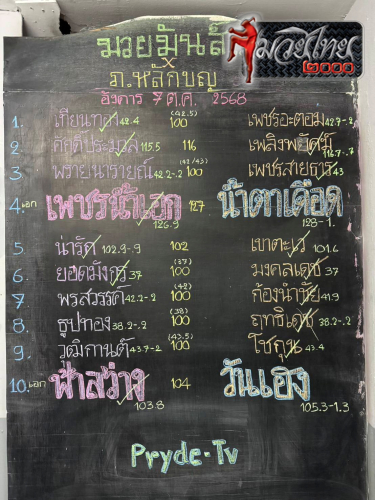 มวยไทย
2000
มวยมันส์
x
ภ.หลักบุญ
อังคาร 7 ต.ค. 2568
1. เทียนทอง 42.4 (42.5) 100 เพชรอะตอม 42.7-.2
2. ศักดิ์ประมวล 115.5 116 เพลิงพยัคฆ์ 116.7-.7
3. พรายนารายณ์ 42.2-.2 (42/43) 100 เพชรสายธาร 43
4. เอก เพชรน้ำเอก 126.9 127 น้ำตาเดือด 128-1.
5. น่ารัก 102.9-.9 102 เขาตะเว 101.6
6. ยอดมังกร 37 (37) 100 มงคลเดช 37
7. พรสวรรค์ 42.2-.2 (42) 100 ก้องนำชัย 41.9
8. ธูปทอง 38.2-.2 (38) 100 ฤทธิเดช 38.2-.2
9. วุฒิกานต์ 43.7-.2 (43.5) 100 โชกุน 43.4
10. เอก ฟ้าสว่าง 103.8 104 วันเอง 105.3-1.3
Pryde-Tv